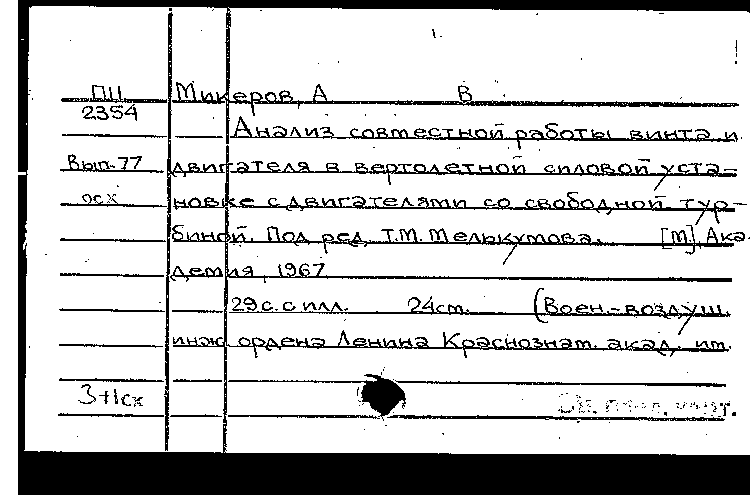 1.
ПЦ Микеров, А В
2354
Анализ совместной работы винта и
Вып. 77 двигателя в вертолетной силовой уста-
осх новке с двигателями со свободной тур-
биной. Под ред. Т.М. Мелькумова. [М], Ака-
демия, 1967
29 с. с илл. 24 см. (Воен.-воздуш.
инж. ордена Ленина Краснознам. акад. им.
3+1ск См. прод. карт.